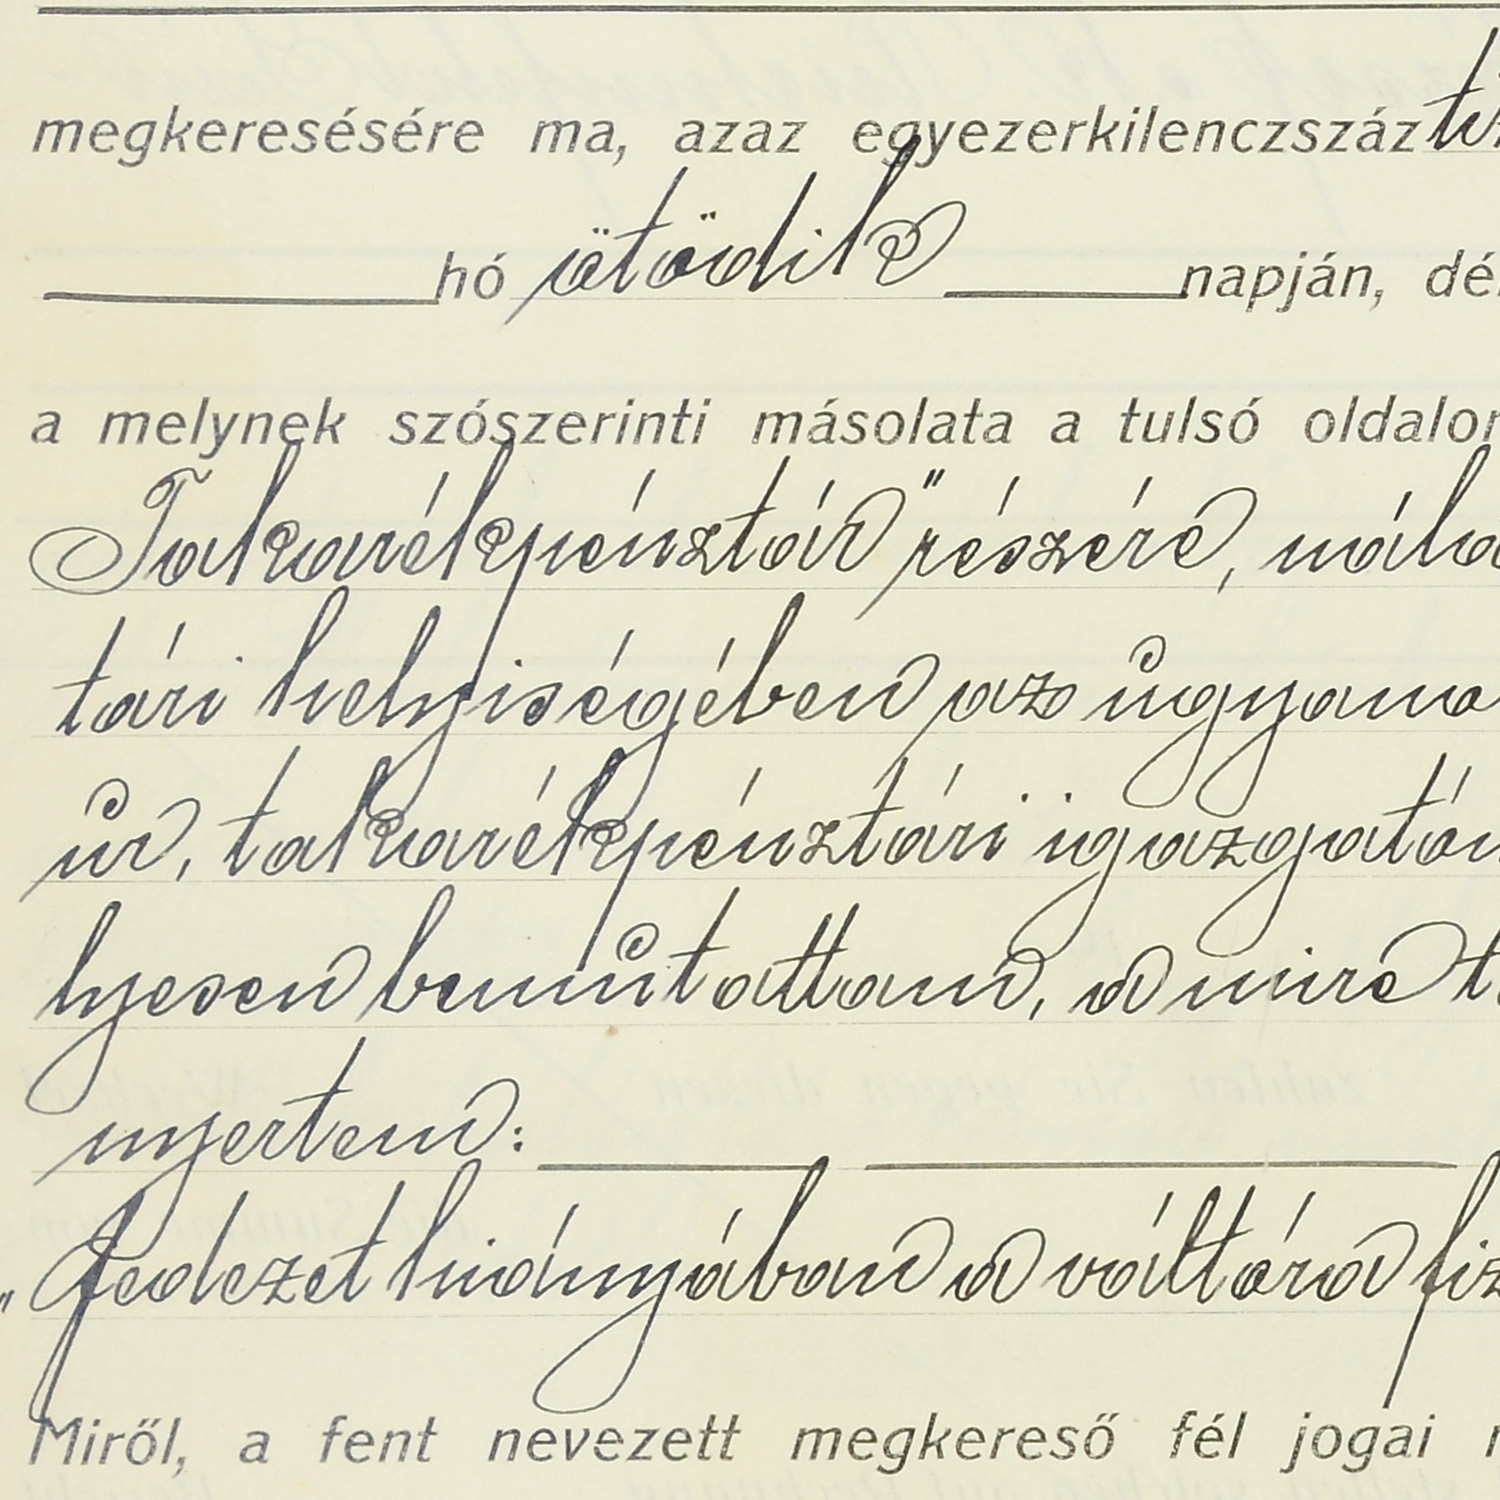 megkeresésére ma, azaz egyezerkilenczszáz ti
hó ötödik napján, dé
a melynek szószerinti másolata a tulsó oldalon
Takarékpénztár" részére, nála
tári helyiségében az ugyana
úr, takarékpénztári igazgatón
lyesen bemutattam, a mire t
nyertem:
„Fedezet hiányában a váltóra fiz
Miről, a fent nevezett megkereső fél jogai